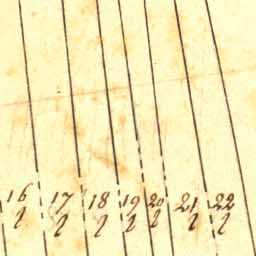 16 17 18 19 20 21 22
2 2 2 2 2 2 2